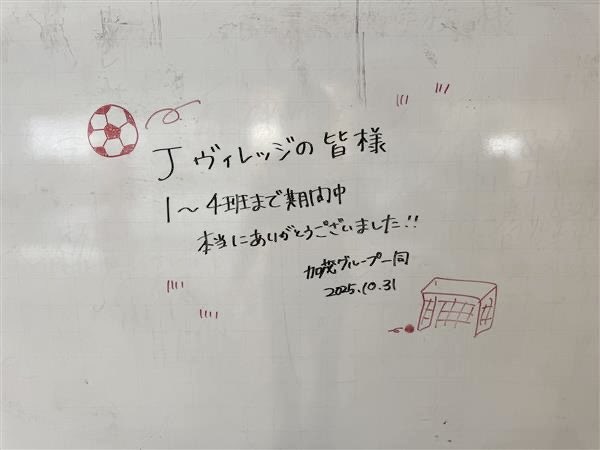 Jヴィレッジの皆様
1〜4班まで期間中
本当にありがとうございました!!
加茂グループ一同
2025.10.31